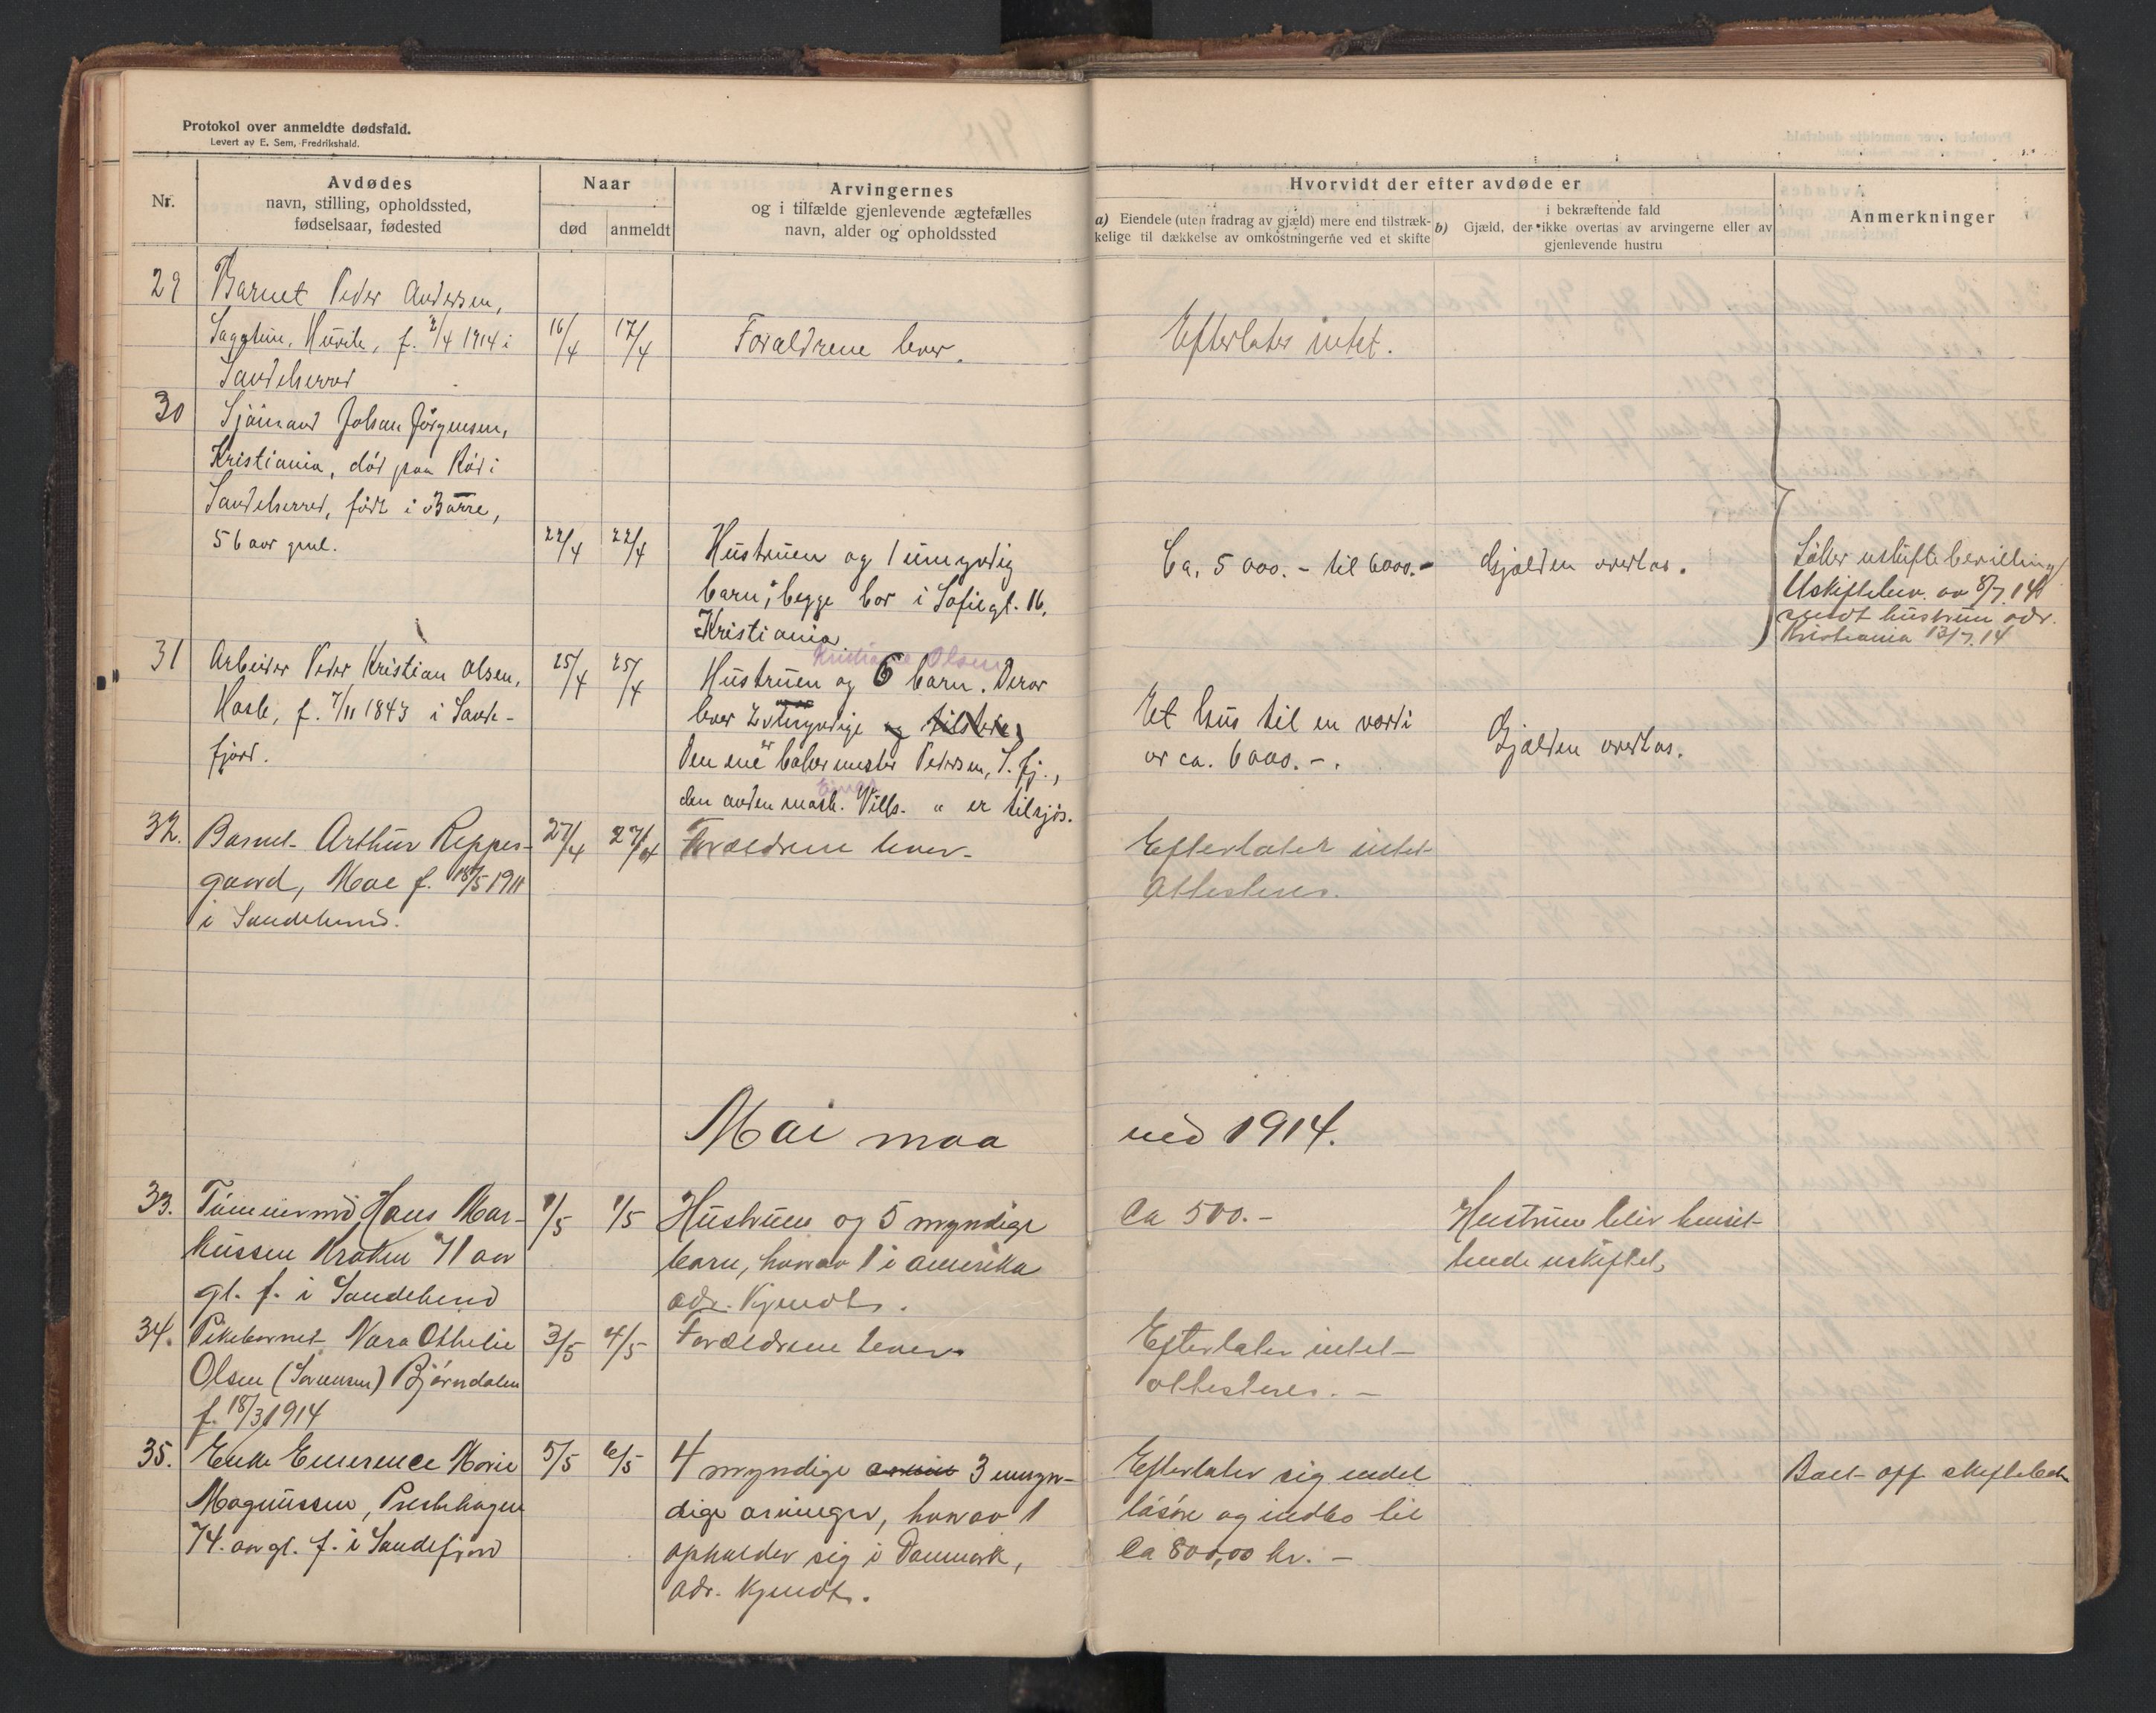 Protokol over anmeldte dødsfald.
Levert av E. Sem, Fredrikshald.
Nr.
Avdødes
navn, stilling, opholdssted,
fødselsaar, fødested
Naar
død
anmeldt
Arvingernes
og i tilfælde gjenlevende ægtefælles
navn, alder og opholdssted
Hvorvidt der efter avdøde er
a) Eiendele (uten fradrag av gjæld) mere end tilstræk-
kelige til dækkelse av omkostningerne ved et skifte
b) Gjæld, der ikke overtas av arvingerne eller av
i bekræftende fald
gjenlevende hustru
Anmerkninger
29
Barnet Peder Andersen,
f. 2/4 1914 i
Sandeherred
16/4
17/4
Forældrene lever.
Efterlater intet.
30
Sjømand Johan Jørgensen,
Kristiania, død paa Rød i
Sandeherred, født i Borre,
56 aar gml.
22/4
22/4
Hustruen og 1 umyndig
barn, begge bor i Sofiegt. 16,
Kristiania
Ca. 5000.- til 6000.-
Gjælden overtas.
Søker uskiftebevilling
Uskiftebev. av 8/7.14
sendt hustruen adr.
Kristiania 13/7.14
31
Arbeider Peder Kristian Olsen,
Hasle, f. 7/11 1843 i Sande-
fjord.
25/4
25/4
Kristiane Olsen
Hustruen og 6 barn. Derav
lever 2 umyndige og tilstede
Den ene er bakermester Pedersen, S.fj.,
Einar
den anden mask. Vilh. " er tilsjøs.
Et hus til en værdi
av ca. 6000.-.
Gjælden overtas.
32.
Barnet Arthur Reppes-
gaard, Moe f. 18/5 1911
i Sandeherred.
27/4
27/4
Forældrene lever.
Efterlater intet
Attesteres.
Mai maa
ned 1914.
33.
Tømmermd Hans Mar-
kussen Kraken 71 aar
gl. f. i Sandeherred
1/5
1/5
Hustruen og 5 myndige
barn, hvorav 1 i Amerika
adr. Kjendt.
Ca 500.-
Hustruen blir hensit-
tende uskiftet,
34.
Pikebarnet Nora Othelie
Olsen (Sørensen) Bjørndalen
f. 18/3 1914
3/5
4/5
Forældrene lever.
Efterlater intet
attesteres. -
35.
Enke Emerence Marie
Magnussen, Prestehagen
74. aar gl. f. i Sandefjord
5/5
6/5
4 myndige 3 umyn-
dige arvinger, hvorav 1
opholder sig i Danmark,
adr. Kjendt.
Efterlater sig endel
løsøre og indbo til
Ca 800,00 kr. -
Boet off skiftebeh